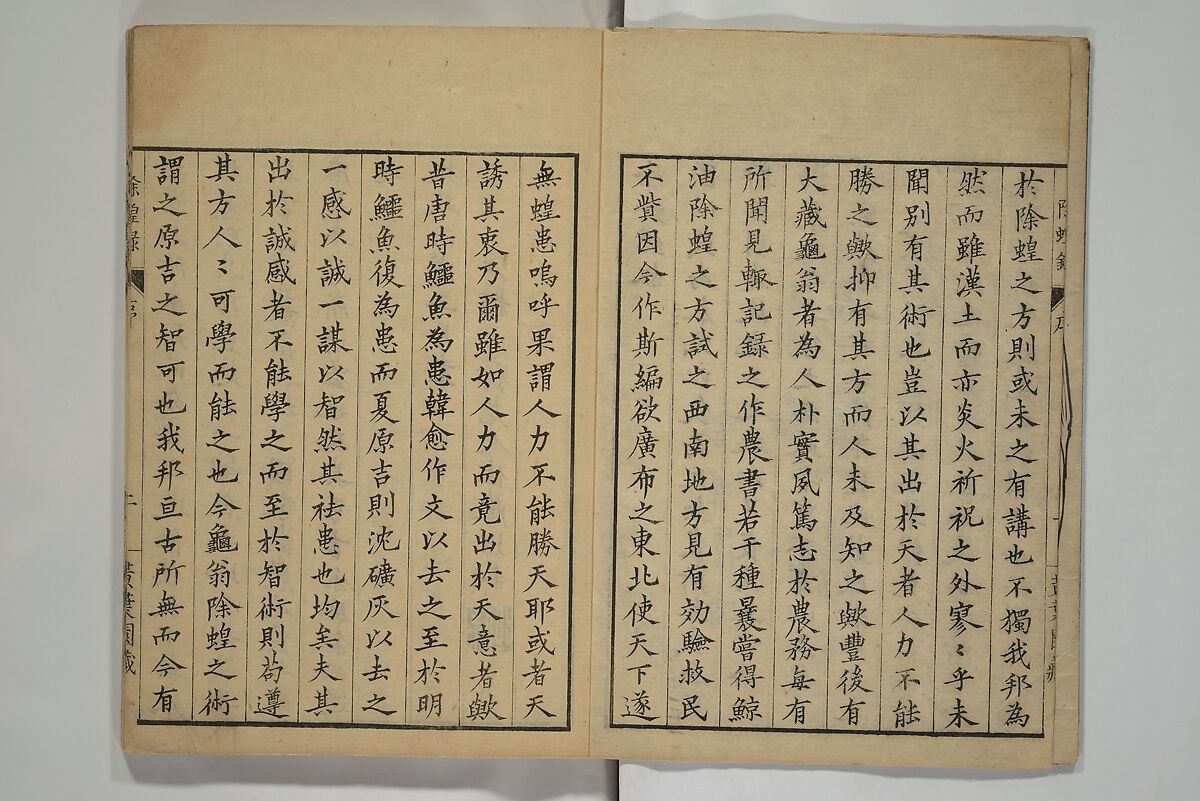 於除蝗之方則或未之有講也不獨我邦為
然而雖漢土而亦炎火祈祝之外寥〻乎未
聞別有其術也豈以其出於天者人力不能
勝之歟抑有其方而人未及知之歟豐後有
大藏龜翁者為人朴實夙篤志於農務每有
所聞見輙記録之作農書若干種曩嘗得鯨
油除蝗之方試之西南地方見有効驗救民
不貲因今作斯編欲廣布之東北使天下遂
無蝗患嗚呼果謂人力不能勝天耶或者天
誘其衷乃爾雖如人力而竟出於天意者歟
昔唐時鱷魚為患韓愈作文以去之至於明
時鱷魚復為患而夏原吉則沈礦灰以去之
一感以誠一謀以智然其祛患也均矣夫其
出於誠感者不能學之而至於智術則茍遵
其方人〻可學而能之也今龜翁除蝗之術
謂之原吉之智可也我邦亘古所無而今有
除蝗録 序 二 黄葉園藏